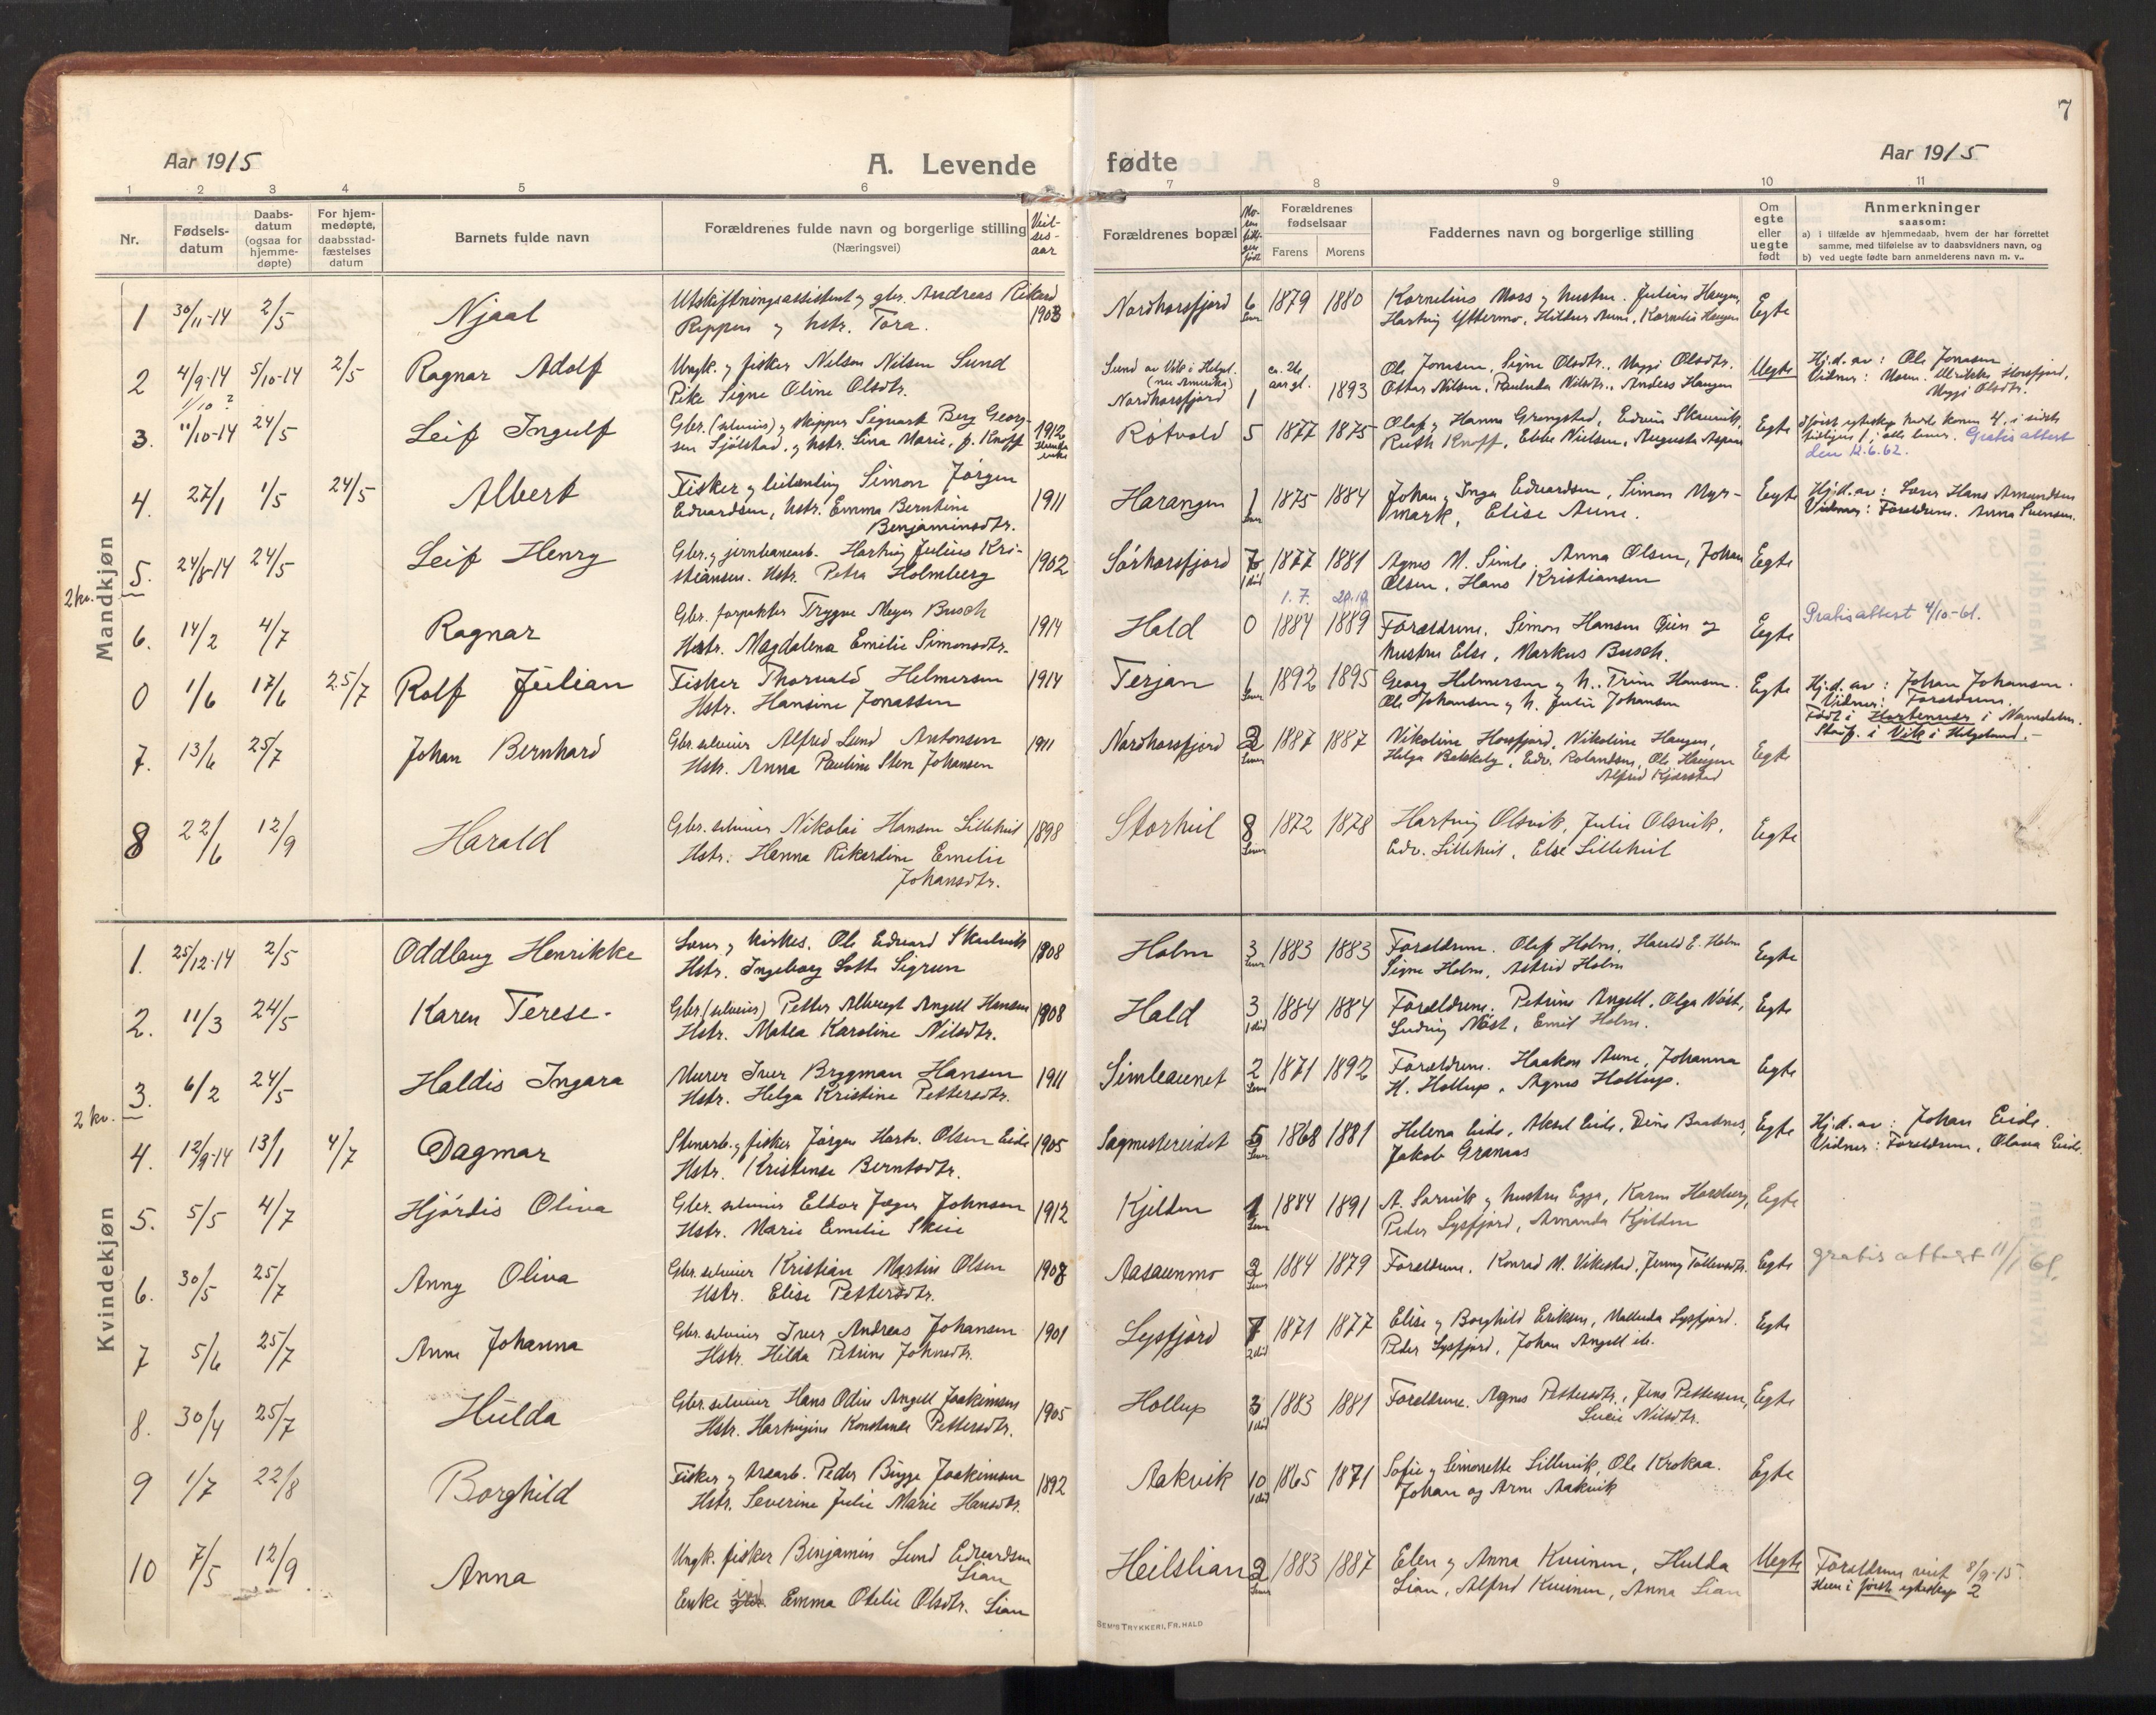 7
Aar 1915
A. Levende fødte
Aar 1915
1 2 3 4 5 6 7 8 9 10 11
Nr.
Fødsels-
datum
Daabs-
datum
(ogsaa for
hjemme-
døpte)
For hjem-
medøpte,
daabsstad-
fæstelses
datum
Barnets fulde navn
Forældrenes fulde navn og borgerlige stilling
(Næringsvei)
Viel-
ses-
aar
Forældrenes bopæl
Forældrenes
fødselsaar
Farens Morens
Faddernes navn og borgerlige stilling
Om
egte
eller
uegte
født
Anmerkninger
saasom:
a) i tilfælde av hjemmedaab, hvem der har forrettet
samme, med tilføielse av to daabsvidners navn, og
b) ved uegte fødte barn anmelderens navn m. v..
Mandkjøn
1 30/11-14 2/5 Njaal
Utskiftningsassistent og gbr. Andreas Rikard
Rippen og hstr. Tora. 1903
Nordhorsfjord 6 1879 1880
Kornelius Moss og hustru. Julian Haugen,
Hartvig Yttermo, Hildur Aune, Kornelia Haugen
Egte
2 4/9-14 5/10-14 2/5 Ragnar Adolf
Ungk. og fisker Nelson Nilsen Sund
Pike Signe Oline Olsdtr.
Sund av Vik i Helgel.
(nu Amerika)
Nordhorsfjord 1 ca. 26
aar gl. 1893
Ole Jonasen, Signe Olsdtr., Maggi Olsdtr.
Ottar Nilsen, Pauluda Nilsdtr., Anders Haugen
Uegte
Hj.d. av: Ole Jonasen
Vidner: Moren. Ulrikke Horsfjord,
Maggi Olsdtr.
1/10 ?
3. 11/10-14 24/5 Leif Ingulf
Gbr. (selveier) og skipper Sigvart Berg Georg-
sen Sjölstad, og hstr. Lina Marie, f. Knoff 1912
Rötvold 5 1877 1875
Olaf og Hanna Grongstad, Edvin Skaervik,
Ruth Knoff, Ebbe Nielsen, Augusta Aspaas
Egte
Gratis attest
den 12.6.62.
4. 27/1 1/5 24/5 Albert
Fisker og leilending Simon Jörgen
Edvardsen, hstr. Emma Berntine
Benjaminsdtr. 1911
Harangen 1 1875 1884
Johan og Inga Edvardsen, Simon Myr-
mark, Elise Aune.
Egte
Hj.d. av: Lærer Hans Amundsen
Vidner: Forældrene. Anna Svensen.
2 kv.
5. 24/8-14 24/5 Leif Henry
Gbr. og jernbanearb. Hartvig Julius Kri-
stiansen. Hstr. Petra Holmberg 1902
Sörhorsfjord 7 1 död 1877 1881
Agnes M. Simle, Anna Olsen, Johan
Olsen, Hans Kristiansen
Egte
1.7. 20.10
6. 14/2 4/7 Ragnar
Gbr. forpakter Trygve Meyer Busch
Hstr. Magdalena Emelie Simonsdtr. 1914
Hald 0 1884 1889
Forældrene. Simon Hansen Öien og
hustru Else, Markus Busch.
Egte
Gratisattest 4/10-61.
0 1/6 17/6 25/7 Rolf Julian
Fisker Thorvald Helmersen
Hstr. Hansine Jonassen 1914
Terjan 1 1892 1895
Georg Helmersen og h. Trine Hansen.
Ole Johansen og h. Julie Johansen
Egte
Hj.d. av: Johan Johansen.
Vidner: Forældrene.
Födt i i Namdalen.
i Vik i Helgeland.
7. 13/6 25/7 Johan Bernhard
Gbr. selveier Alfred Lund Antonsen
Hstr. Anna Pauline Sten Johansen 1911
Nordhorsfjord 2 1887 1887
Nikoline Horsfjord, Nikoline Haugen,
Helga Bekkely, Edv. Rolandsen, Ole Haugen
Alfred Kjærstad
Egte
8 22/6 12/9 Harald
Gbr. selveier Nikolai Hansen Lillehiil
Hstr: Hanna Rikardine Emelie
Johansdtr. 1898
Storhiil 8 1872 1878
Hartvig Olsvik, Julie Olsvik,
Edv. Lillehiil, Else Lillehiil
Egte
Kvindekjøn
1. 25/12-14 2/5 Oddlaug Henrikke
Lærer og kirkes. Ole Edvard Skulsvik
Hstr. Ingeborg Lotte Sigrun 1908
Holm 3 1883 1883
Forældrene. Olaf Holm, Harald E. Holm
Signe Holm, Astrid Holm
Egte
2. 11/3 24/5 Karen Terese.
Gbr. (selveier) Petter Albregt Angell Hansen
Hstr. Matea Karoline Nilsdtr. 1908
Hald 3 1 död 1884 1884
Forældrene. Petrine Angell, Olga Näst,
Ludvig Näst, Emil Holm.
Egte
3. 6/2 24/5 Haldis Ingara
Murer Iver Brygman Hansen
Hstr. Helga Kristine Pettersdtr. 1911
Simleaunet 2 1871 1892
Forældrene. Haakon Aune, Johanna
H. Hollup, Agnes Hollup.
Egte
2 kv.
4. 12/9-14 13/1 4/7 Dagmar
Stenarb. og fisker Jörgen Hartv. Olsen Eide
Hstr. Kristense Berntsdtr. 1905
Sagmestereidet 5 1868 1881
Helena Eide, Aksel Eide, Dine Baadnes,
Jakob Grannas
Egte
Hj.d. av: Johan Eide.
Vidner: Forældrene, Olava Eide.
5. 5/5 4/7 Hjördis Oliva
Gbr. selveier Eldor Jæger Johnsen
Hstr. Marie Emelie Skeie 1912
Kjelden 1 1884 1891
A. Sørvik og hustru Egga, Karen Horsberg,
Peder Lysfjord, Amanda Kjelden
Egte
6. 30/5 25/7 Anny Oliva
Gbr. selveier Kristian Martin Olsen
Hstr. Elise Pettersdtr. 1908
Aasaunmo 2 1884 1879
Forældrene. Konrad M. Vikestad, Jenny Tollevsdtr.
Egte
gratis attest 11/1 61.
7 5/6 25/7 Anne Johanna
Gbr. selveier Iver Andreas Johansen
Hstr. Hilda Petrine Johnsdtr. 1901
Lysfjord 7 2 död 1871 1877
Elise og Borghild Eriksen, Malluda Lysfjord.
Peder Lysfjord, Johan Angell ib.
Egte
8. 30/4 25/7 Hulda
Gbr. selveier Hans Odin Angell Joakimsen
Hstr. Hartvigine Konstanse Pettersdtr. 1905
Hollup 3 1 död 1883 1881
Forældrene. Agnes Pettersdtr., Jens Pettersen,
Lucie Nilsdtr.
Egte
9 1/7 22/8 Borghild
Fisker og træarb. Peder Bugge Joakimsen
Hstr. Severine Julie Marie Hansdtr. 1892
Aakvik 10 1 död 1865 1871
Sofie og Simonette Lillevik, Ole Krokaa.
Johan og Arne Aakvik
Egte
10 7/5 12/9 Anna
Ungk. fisker Benjamin Lund Edvardsen
Lian
Enke Emma Otelie Olsdtr. Lian
Heilslian 2 1883 1887
Elen og Anna Kveinen, Hulda
Lian, Alfred Kveinen, Anna Lian
Uegte
Forældrene viet 8/9-15.
Hun i förste egteskap 2
SEM'S TRYKKERI, FR.HALD